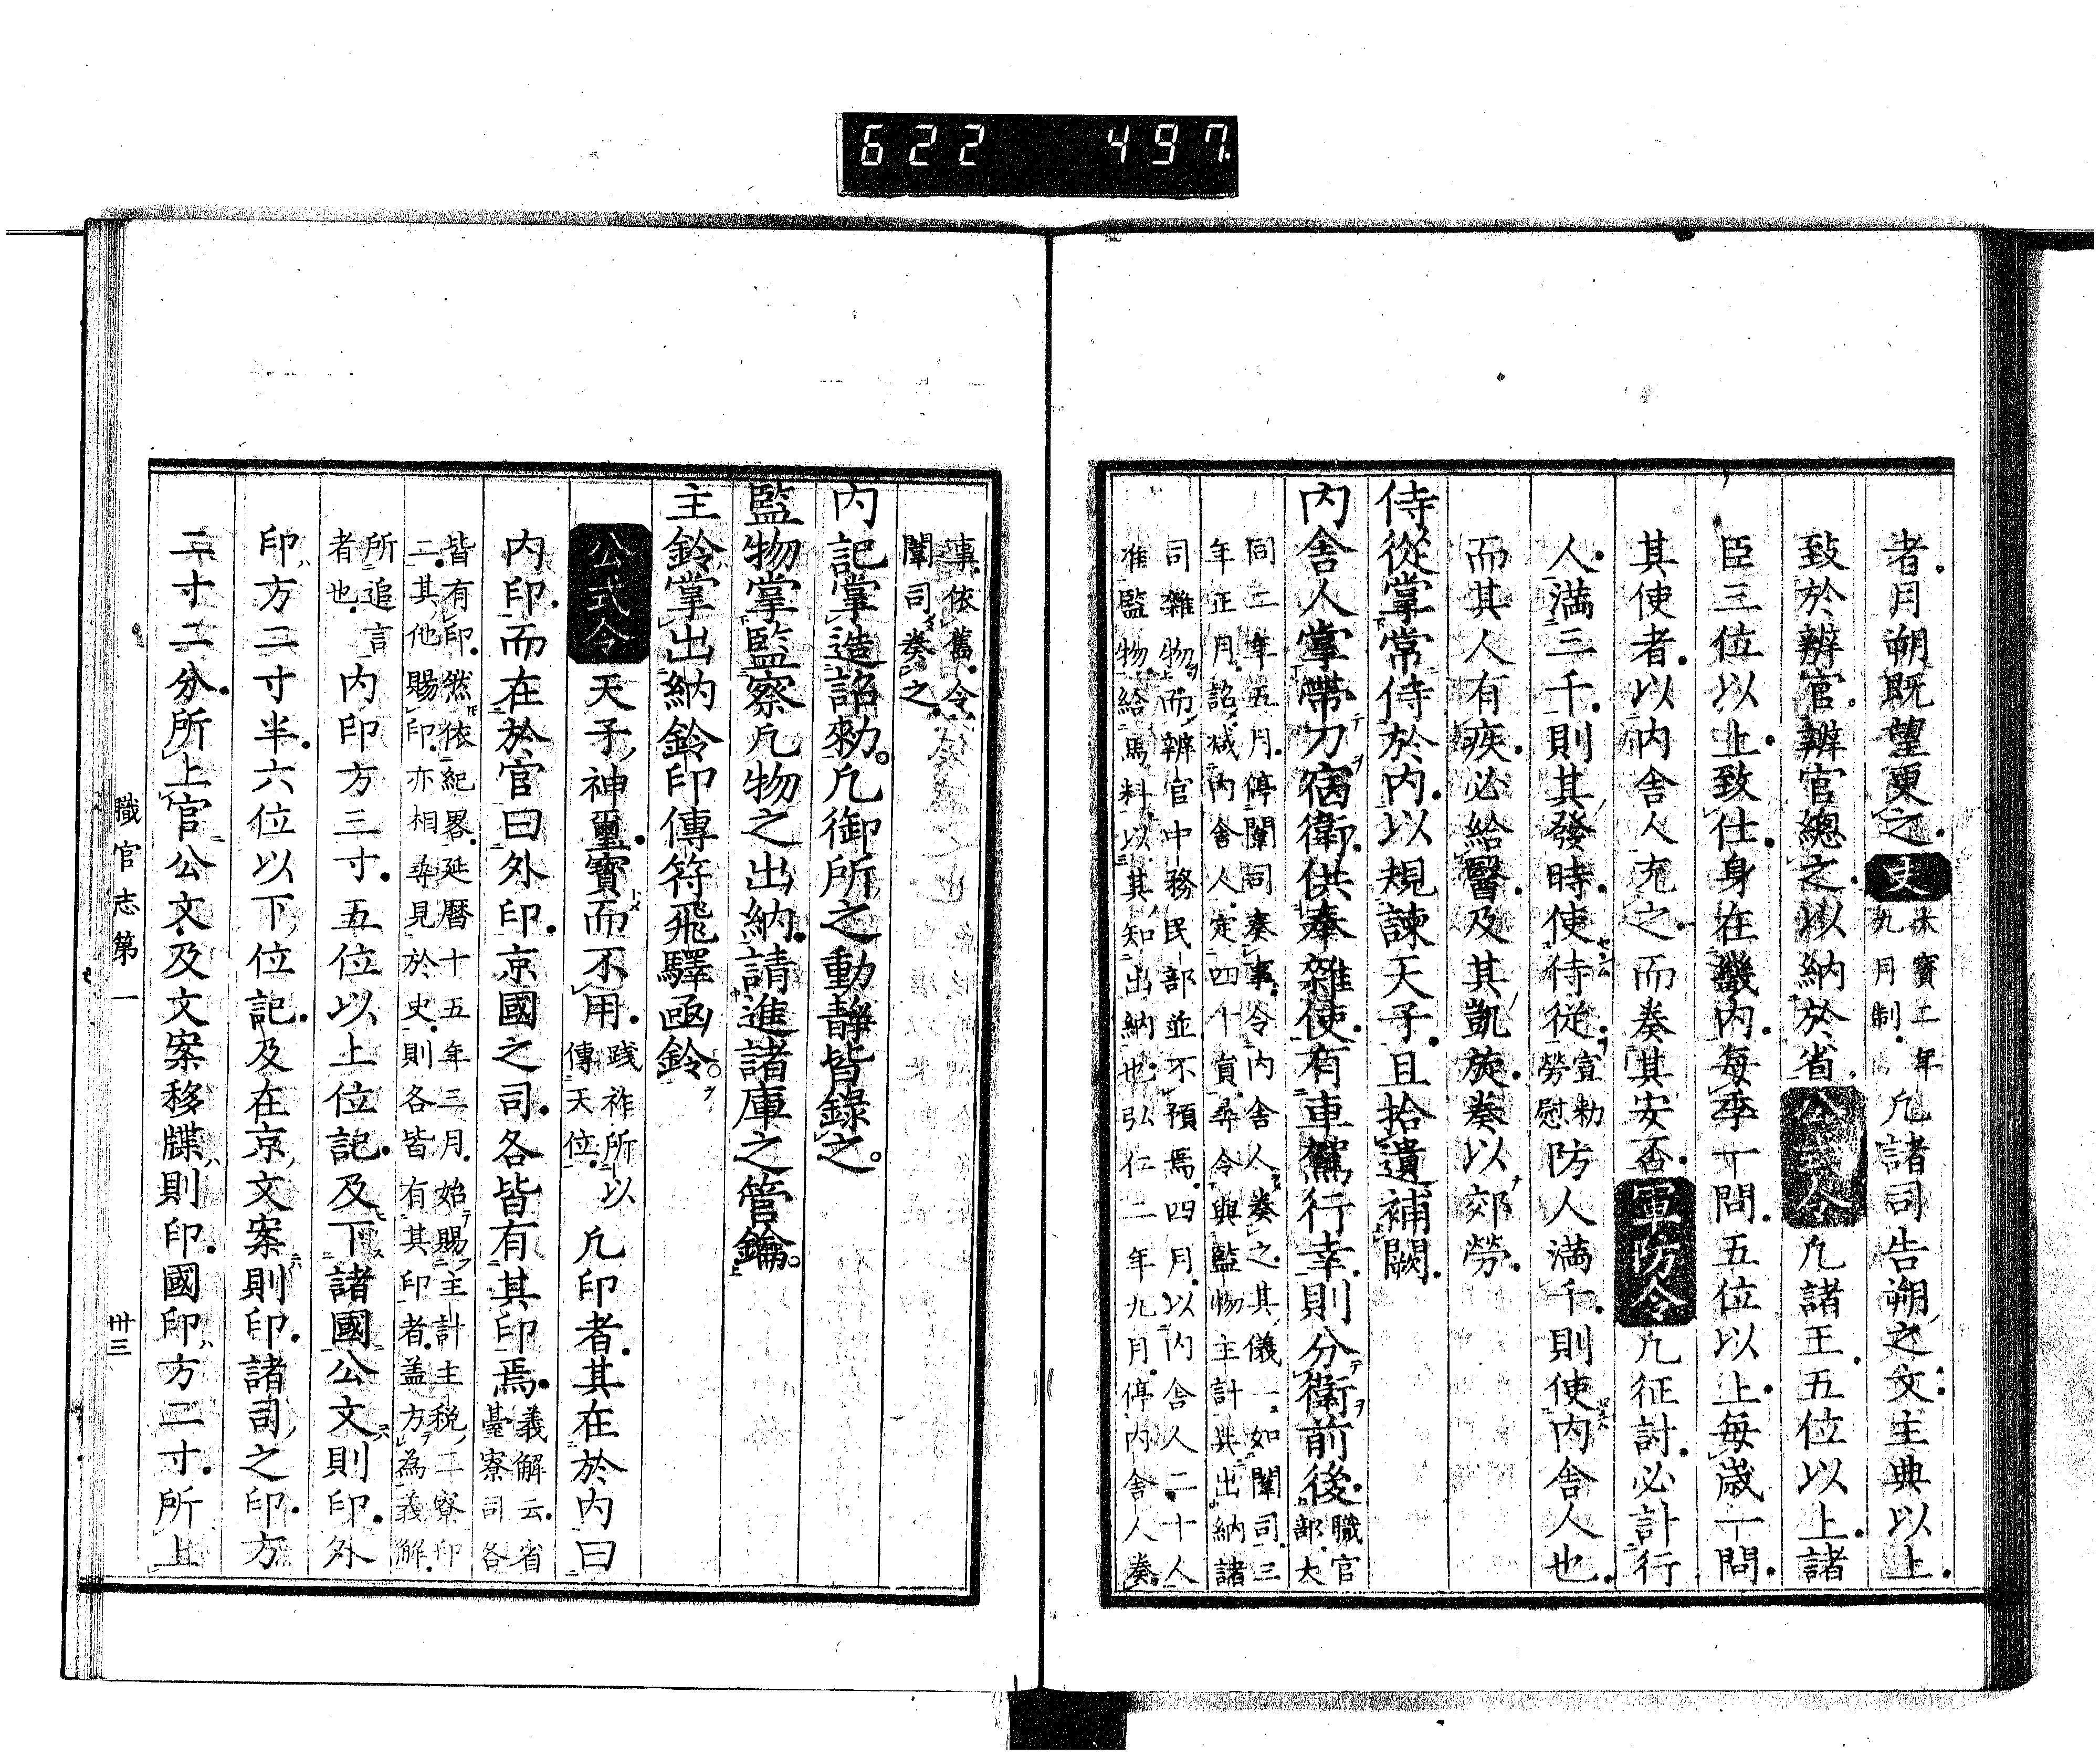 622 497
者月朔既望更之史 木寶二年
九月制 凡諸司告朔之文主典以上
致於辨官辨官總之以納於省公式令凡諸王五位以上諸
臣三位以上致仕身在畿内每季一問五位以上每歲一問
其使者以内舍人充之而奏其安否軍防令凡征討必計行
人滿三千則其發時使侍從宣勑
勞慰防人滿千則使内舍人也
而其人有疾必給醫及其凱旋奏以郊勞
侍從掌常侍於内以規諫天子且拾遺補闕
内舍人掌帶刀宿衛供奉雜使有車駕行幸則分衛前後職官
部大
同二年五月停闈司奏事令内舍人奏之其儀一如闈司三
年正月詔減内舍人定四十員尋令與監物主計共出納諸
司雜物而辨官中務民部並不預焉四月以内舍人二十人
准監物給馬料以其知出納也弘仁二年九月停内舍人奏
事依舊令
闈司奏之
内記掌造詔勑凡御所之動靜皆錄之
監物掌監察凡物之出納請進諸庫之管鑰
主鈴掌出納鈴印傳符飛驛函鈴
公式令天子神璽寶而不用踐祚所以
傳天位凡印者其在於内曰
内印而在於官曰外印京國之司各皆有其印焉義解云省
臺寮司各
皆有印然依紀畧延曆十五年三月始賜主計主稅二寮印
二其他賜印亦相尋見於史則各皆有其印者蓋方為義解
所追言
者也内印方三寸五位以上位記及下諸國公文則印外
印方二寸半六位以下位記及在京文案則印諸司之印方
二寸二分所上官公文及文案移牒則印國印方二寸所上
職官志第一
卅三